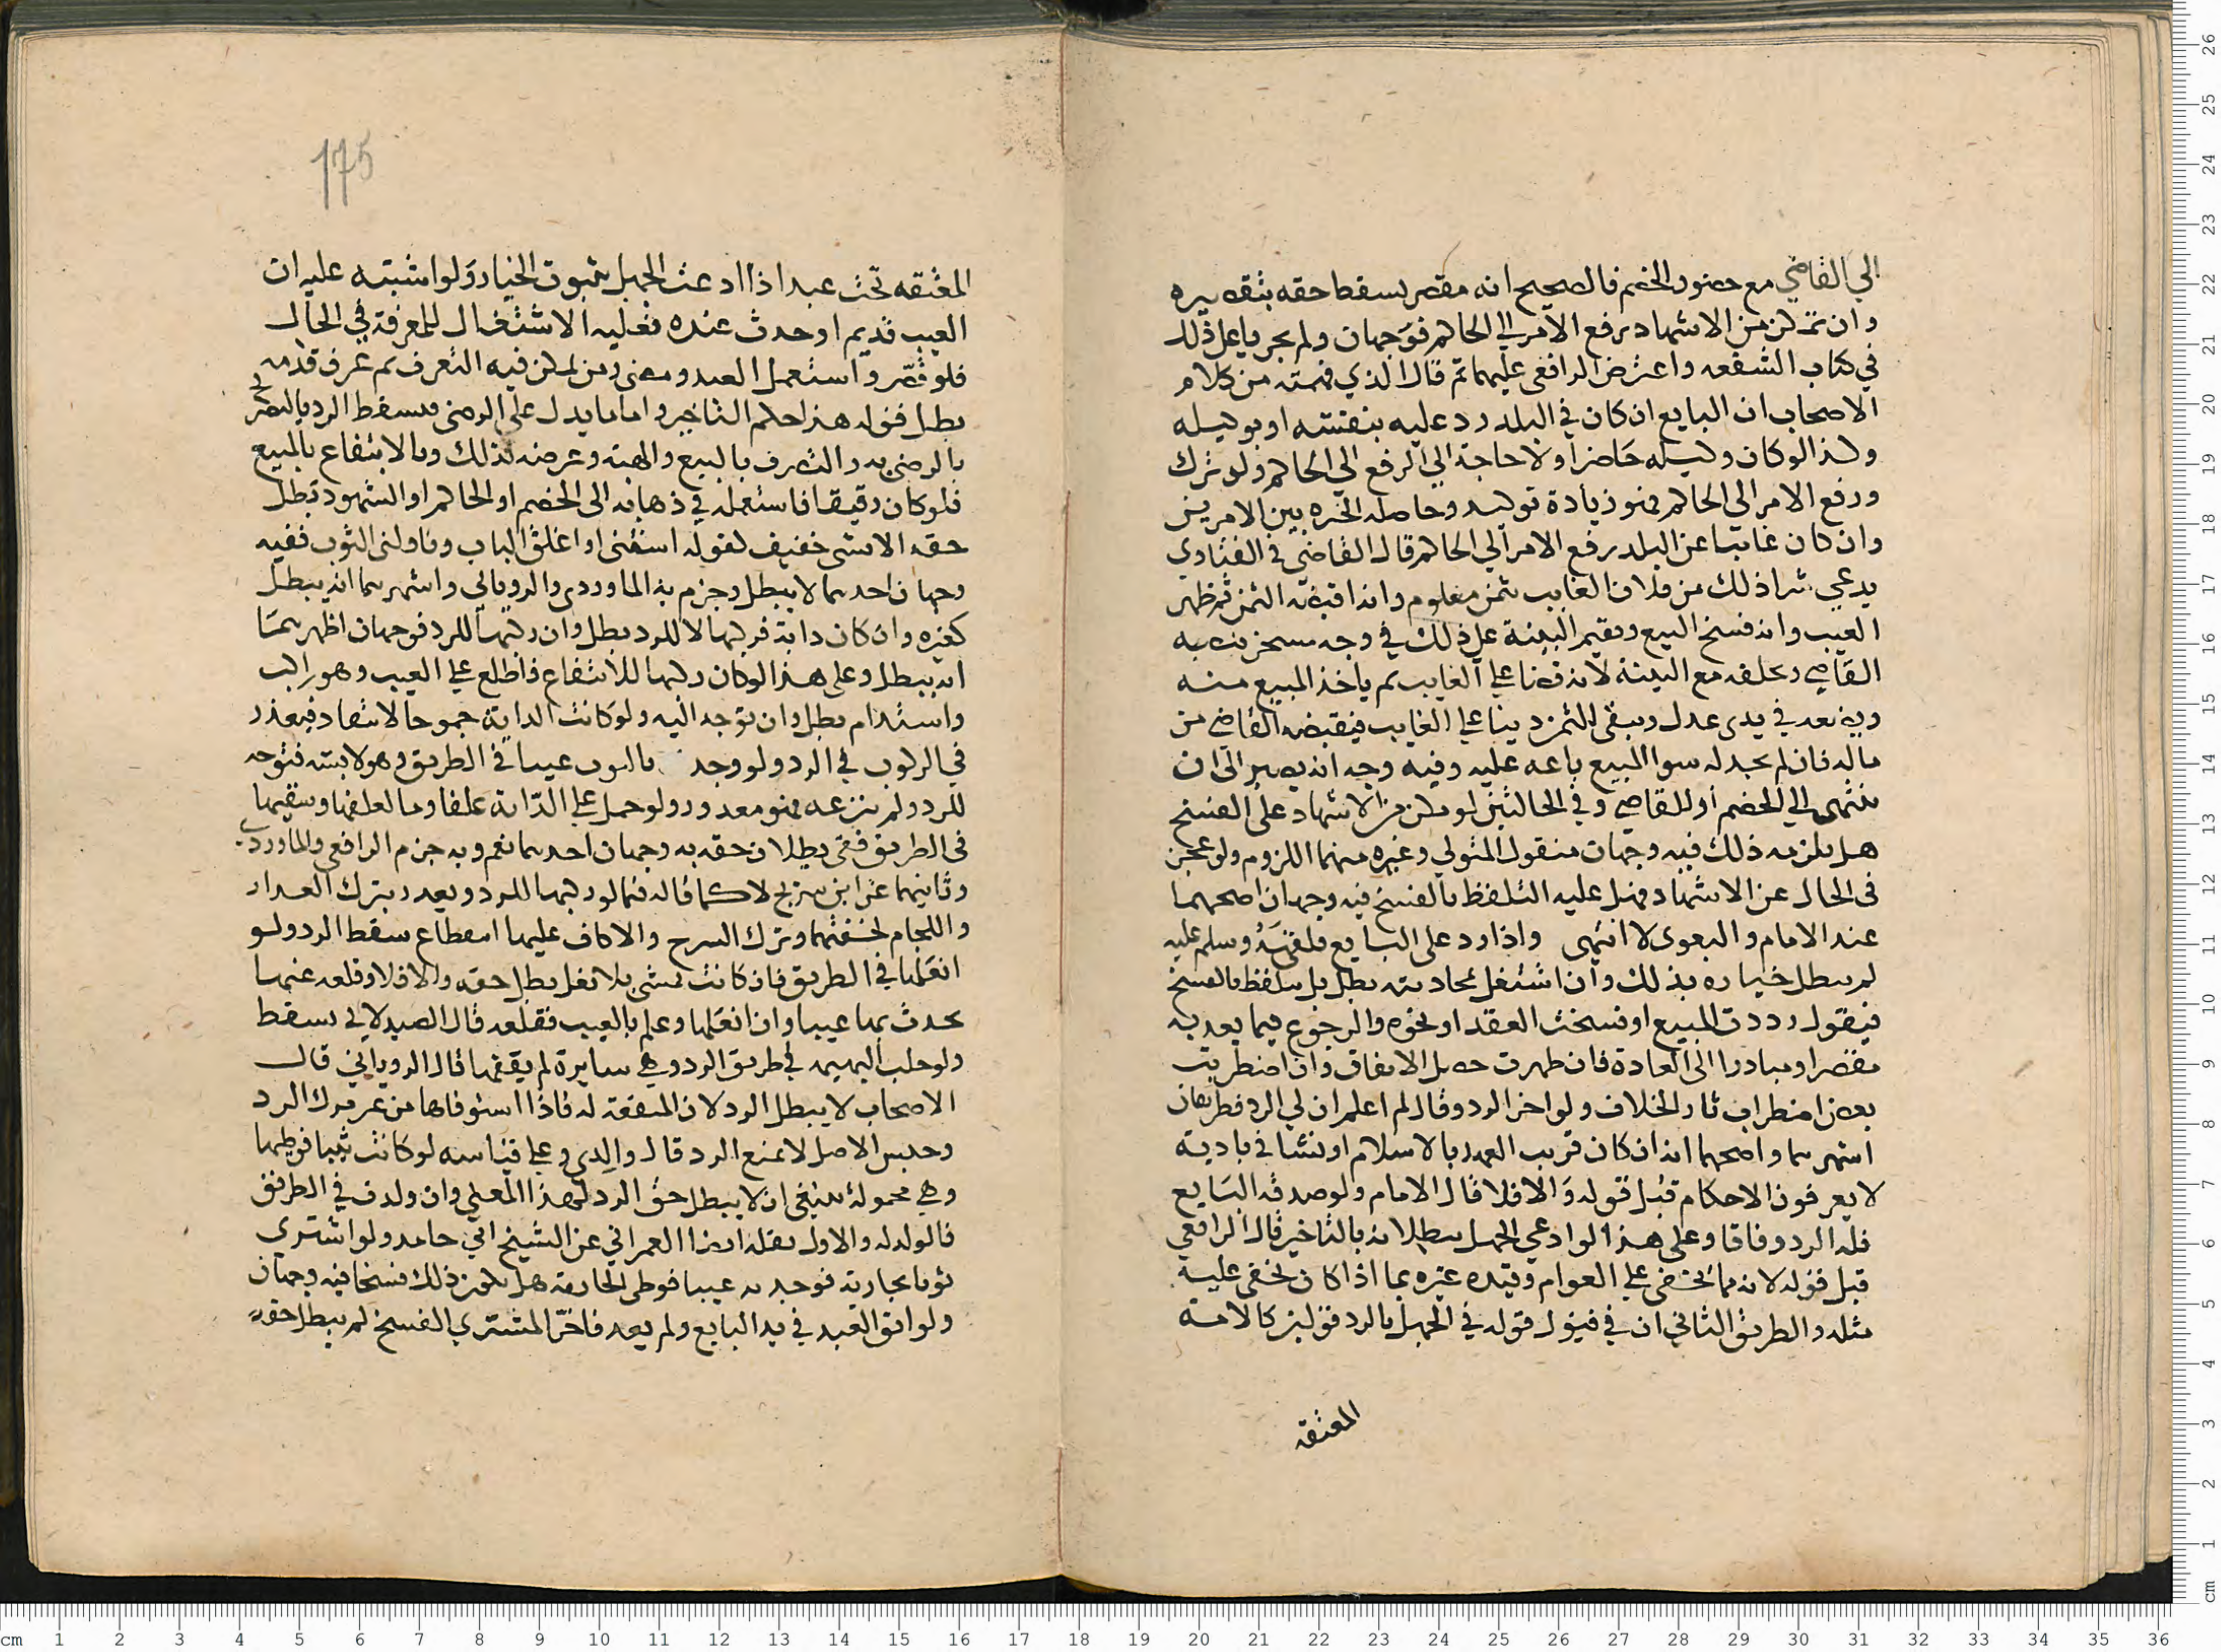 الى القاضي مع حضور الخصم فالصحيح انه مقصر يسقط حقه بتقصيره
وان تمكن من الاشهاد برفع الامر الى الحاكم فوجهان ولم يجريا على ذلك
في كتاب الشفعه واعترض الرافعي عليهما ثم قال الذي فهمته من كلام
الاصحاب ان البايع ان كان في البلد رد عليه بنفسه او بوكيله
وكذا لو كان وكيله حاضرا ولا حاجة الى الرفع الى الحاكم ولو ترك
ورفع الامر الى الحاكم فهو زيادة توكيد وحاصله الخيره بين الامرين
وان كان غايبا عن البلد رفع الامر الى الحاكم قال القاضى في الفتاوي
يدعي شرا ذلك من فلان الغايب بثمن معلوم وانه اقبضه الثمن ثم ظهر
العيب وانه فسخ البيع ويقيم البينة على ذلك في وجه مسخر ينصبه
القاضي ويحلفه مع البينة لانه قضا على الغايب ثم ياخذ المبيع منه
ويضعه في يدى عدل ويبقى الثمن دينا على الغايب فيقبضه القاضي من
ماله فان لم يجد له سوا المبيع باعه عليه وفيه وجه انه يصبر الى ان
ينتهى الى الخصم او للقاضي وفي الحالتين لو تمكن من الاشهاد على الفسخ
هل يلزمه ذلك فيه وجهان منقول المتولي وغيره منهما اللزوم ولو عجز
فى الحال عن الاشهاد فهل عليه التلفظ بالفسخ فيه وجهان اصحهما
عند الامام والبغوى لا انتهى واذا رد على البايع فلقيه وسلم عليه
لم يبطل خياره بذلك وان اشتغل بمحادثته بطل بل يتلفظ بالفسخ
فيقول رددت المبيع او فسخت العقد او نحوه والرجوع فيما يعد به
مقصرا ومبادرا الى العادة فان ظهرت حصل الاتفاق وان اضطربت
بعض اضطراب ثار الخلاف ولو اخر الرد وقال لم اعلم ان لي الرد فطريقان
اشهرهما واصحهما انه ان كان قريب العهد بالاسلام او نشا في بادية
لا يعرفون الاحكام قبل قوله والا فلا قال الامام ولو صدقه البايع
فله الرد وفاقا وعلى هذا لو ادعي الجهل ببطلانه بالتاخير قال الرافعي
قبل قوله لانه مما يخفى على العوام وقيده غيره بما اذا كان يخفى عليه
مثله والطريق الثاني ان في قبول قوله في الجهل بالرد قولين كالامه
المعتقه
175
المعتقه تحت عبد اذا ادعت الجهل بثبوت الخيار ولو اشتبه عليه ان
العيب قديم او حدث عنده فعليه الاشتغال للمعرفة في الحال
فلو قصر واستعمل العبد ومضى زمن يمكن فيه التعرف ثم عرف قدمه
بطل فقوله هذا حكم التاخير واما ما يدل على الرضى فيسقط الرد بالتصريح
بالرضى به والتصرف بالبيع والهبة وعرضه لذلك وبالانتفاع بالمبيع
فلو كان رقيقا فاستعمله في ذهابه الى الخصم او الحاكم او الشهود بطل
حقه الا بشى خفيف كقوله اسقنى او اغلق الباب وناولنى الثوب ففيه
وجهان احدهما لا يبطل وجزم به الماوردى والروياني واشهرهما انه يبطل
كغيره وان كان دابة فركبها لا للرد بطل وان ركبها للرد فوجهان اظهرهما
انه يبطل وعلى هذا لو كان ركبها للانتفاع فاطلع على العيب وهو راكب
واستدام بطل وان توجه اليه ولو كانت الدابة جموحا لا تنقاد فيعذر
في الركوب في الرد ولو وجد بالثوب عيبا في الطريق وهو لابسه فتوجه
للرد ولم ينزعه فهو معذور ولو حمل على الدابة علفا وما لعلفها وسقيها
فى الطريق ففى بطلان حقه به وجهان احدهما نعم وبه جزم الرافعي والماوردي
وثانيهما عن ابن سريج لا كما قاله فيما لو ركبها للرد ويعذر بترك العذار
واللجام لخفتهما وترك السرج والاكاف عليها انتفاع سقط الرد ولو
انعلها في الطريق فان كانت تمشي بلا نعل بطل حقه والا فلا وقلعه عنها
يحدث بها عيبا وان انعلها وعلم بالعيب فقلعه قال الصيدلاني سقط
ولو حلب البهيمه في طريق الرد وهي سايرة لم يقفها قال الروياني قال
الاصحاب لا يبطل الرد لان المنفعة له فاذا استوفاها من غير ترك الرد
وحبس الاصل لا يمنع الرد قال والدي وعلى قياسه لو كانت ثيبا فوطيها
وهي محمولة ينبغي ان لا يبطل حق الرد لهذا المعنى وان ولدت في الطريق
فالولد له والاول نقله ايضا العمراني عن الشيخ ابي حامد ولو اشترى
ثوبا بجارية فوجد به عيبا فوطى الجارية هل يكون ذلك فسخا فيه وجهان
ولو ابق العبد في يد البايع ولم يعد فاخر المشتري الفسخ لم يبطل حقه